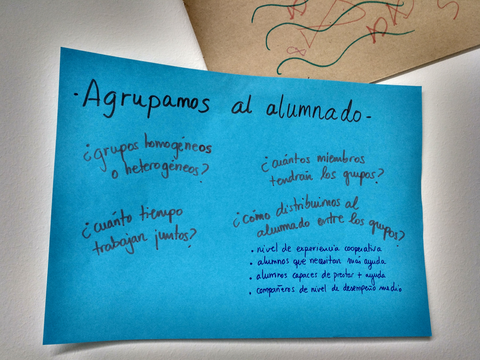 - Agrupamos al alumnado -
¿grupos homogéneos
o heterogéneos?
¿cuántos miembros
tendrían los grupos?
¿cuánto tiempo
trabajan juntos?
¿cómo distribuimos al
alumnado entre los grupos?
• nivel de experiencia cooperativa
• alumnos que necesitan más ayuda
• alumnos capaces de prestar + ayuda
• compañeros de nivel de desempeño medio